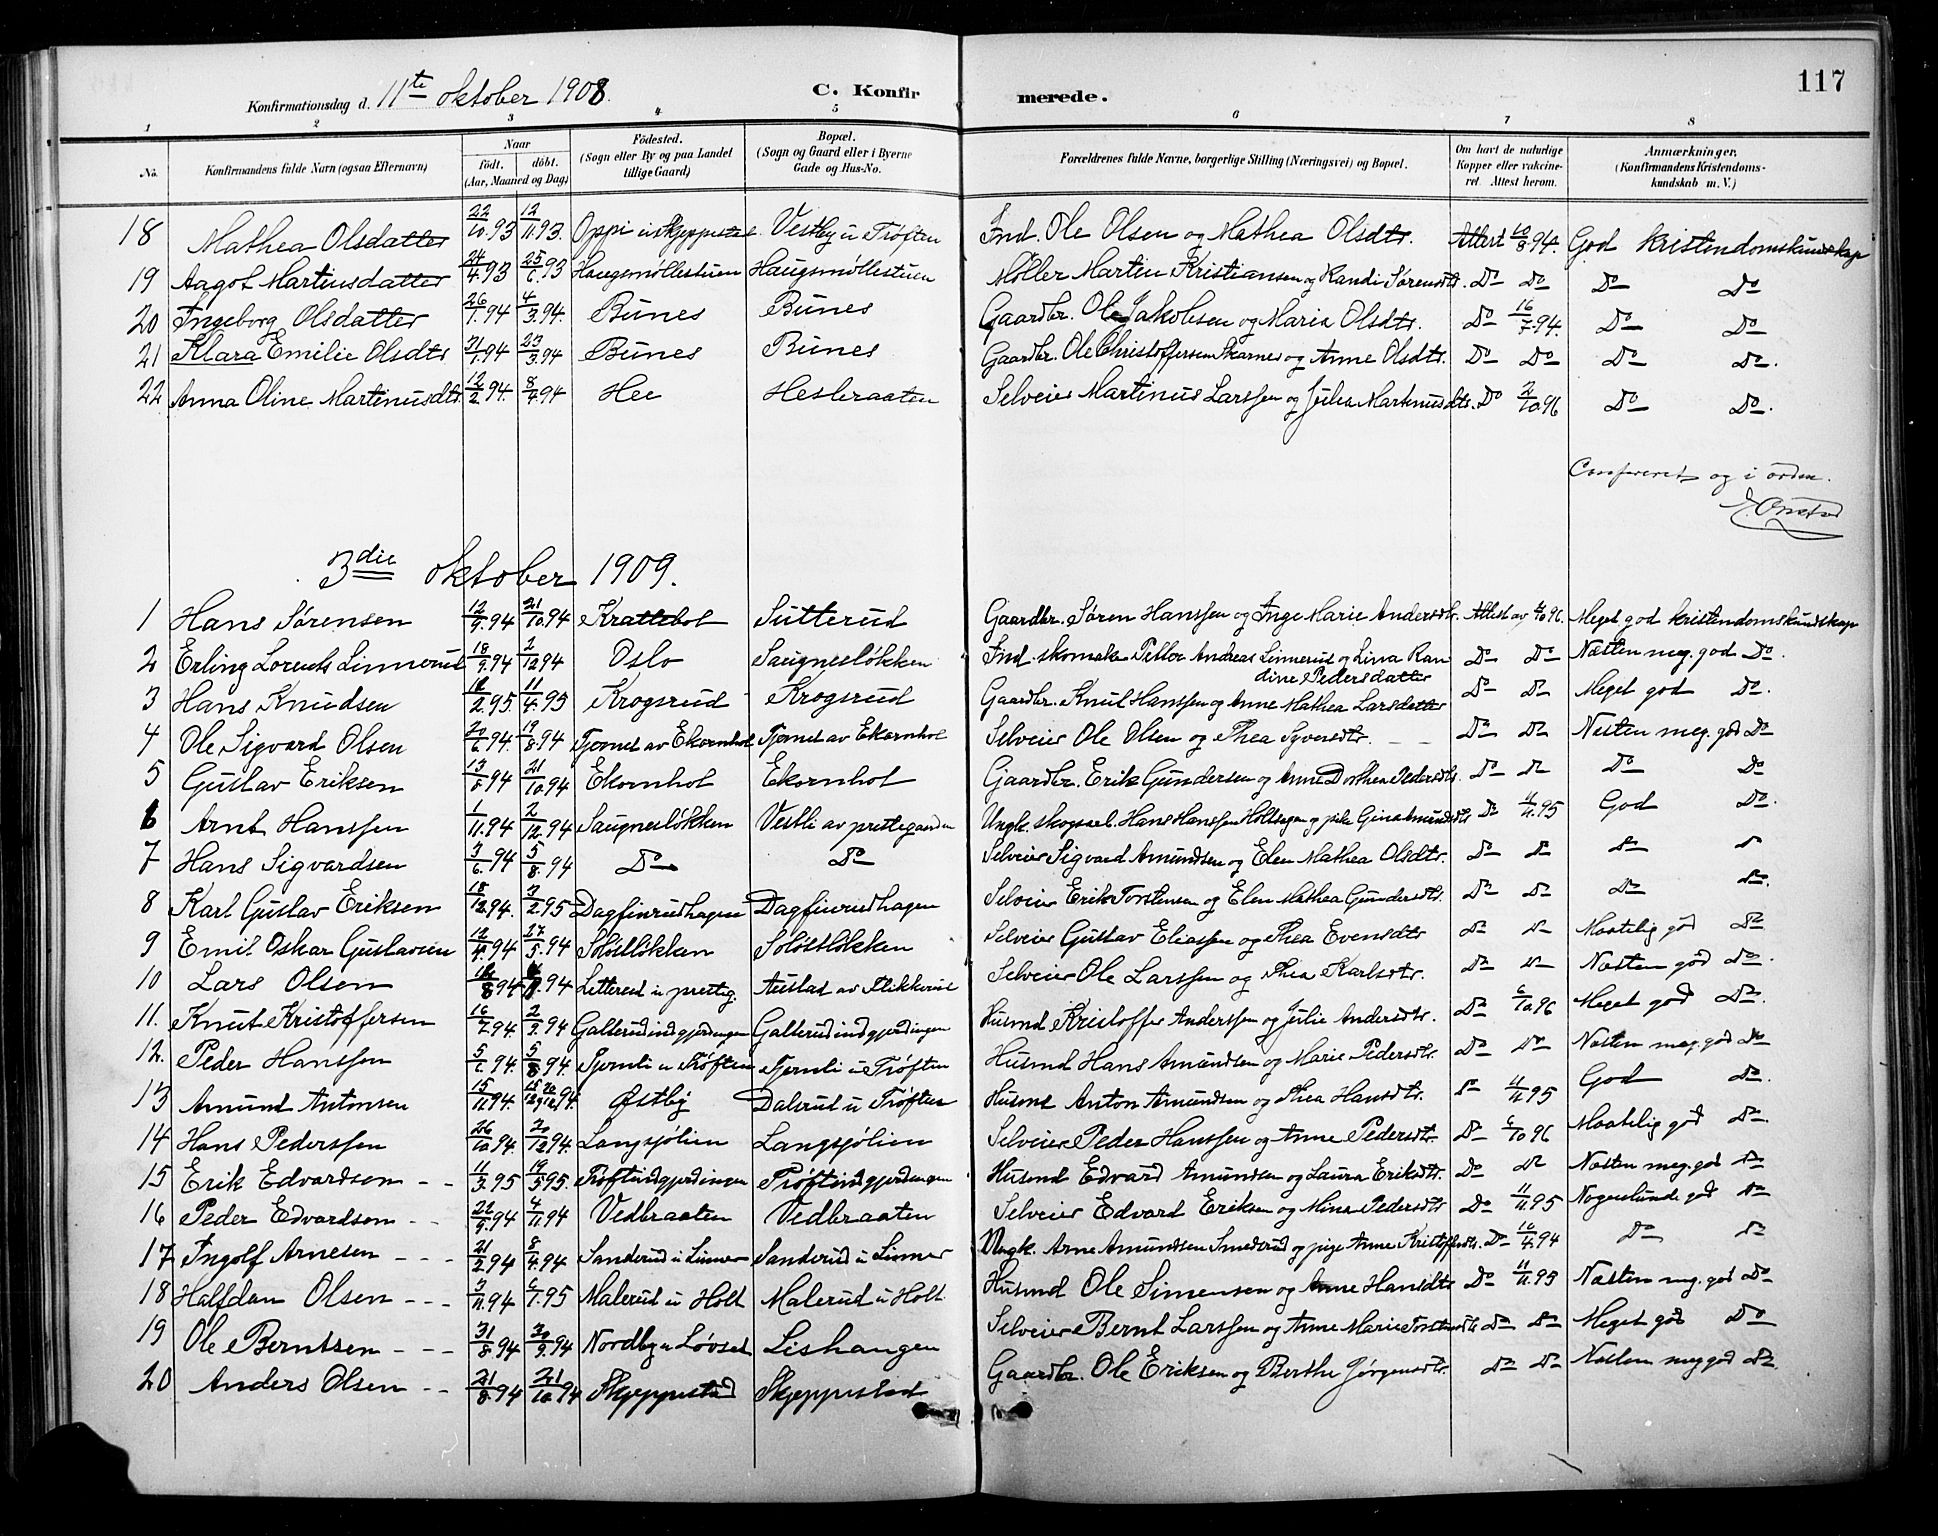 117
Konfirmationsdag d. 11te oktober 1908. C. Konfirmerede.
1 2 3 4 5 6 7 8
No. Konfirmandens fulde Navn (ogsaa Efternavn) Naar födt. döbt. (Aar, Maaned og Dag) Födested. (Sogn eller By og paa Landet tillige Gaard) Bopæl. (Sogn og Gaard eller i Byerne Gade og Hus-No. Forældrenes fulde Navne, borgerlige Stilling (Næringsvei) og Bopæl. Om havt de naturlige Kopper eller vakcineret. Attest herom. Anmærkninger, (Konfirmandens Kristendomskundskab m. V.)
18 Mathea Olsdatter 22/10.93 12/11.93. Oppi u Skjeppestad Vestby u Trøften Ind. Ole Olsen og Mathea Olsdtr. Attest 10/8.94. God kristendomskundskap
19 Aagot Martinsdatter 24/4.93 25/6.93 Haugsmøllestuen Haugsmøllestuen Møller Martin Kristiansen og Randi Sørensdtr. Do Do Do Do
20 Ingeborg Olsdatter 26/1.94 4/3.94. Bunes Bunes Gaardbr. Ole Jakobsen og Maria Olsdtr. Do 16/7.94. Do Do
21 Klara Emilie Olsdtr 31/1.94 23/3.94 Bunes Bunes Gaardbr. Ole Christoffersen Skarnes og Anne Olsdtr. Do Do Do Do.
22 Anna Oline Martinusdtr. 12/2.94. 8/4.94 Hee Hesbraaten Selveier Martinus Larssen og Julia Martinusdtr. Do 2/10.96 Do Do.
Confereret og i orden.
3die oktober 1909.
1 Hans Sørensen 12/9.94 21/10.94 Krattebol Sutterud Gaardbr. Søren Hanssen og Inge Marie Andersdtr. Attest av 4/10 96. Meget god kristendomskundskap
2 Erling Lorents Linnerud 18/9.94 2/12 94 Oslo Saugnesløkken Ind. skomaker Petter Andreas Linnerud og Lina Randine Pedersdatter Do Do Næsten meg. god Do.
3 Hans Knudsen 18/2.95. 11/4.95 Krogsrud Krogsrud Gaardbr. Knut Hanssen og Anne Mathea Larsdatter Do Do Meget god Do.
4 Ole Sigvard Olsen 20/6.94. 19/8.94 Tjernet av Ekornhol Tjernet av Ekornhol Selveier Ole Olsen og Thea Syversdtr. Do Do Nesten meg. god Do
5 Gustav Eriksen 13/8.94 21/10.94 Ekornhol Ekornhol Gjaardbr. Erik Gundersen og Anne Dorthea Pedersdtr. Do Do Do Do
6 Arnt Hanssen 1/11.94 2/12.94 Saugnesløkken Vestli av prestegaarden Ungk. skogsarb. Hans Hanssen Holtsagen og pike Gina Amundsdtr Do 4/11.95 God Do.
7 Hans Sigvardsen 3/6.94 5/8.94 Do Do Selveier Sigvard Amundsen og Elen Mathea Olsdtr. Do Do Do
8 Karl Gustav Eriksen 18/12.94. 3/2.95 Dagfinrudhagen Dagfinrudhagen Selveier Erik Torstensen og Elen Mathea Gundersdtr. Do Do Do Do.
9 Emil Oskar Gustavsen 12/4.94 27/5.94 Soløstløkken Soløstløkken Selveier Gustav Eliassen og Thea Evensdtr Do Do Maatelig god Do
10 Lars Olsen Letterud u prestg. Austad av Flikkerud Selveier Ole Larssen og Thea Karlsdtr. Do Do Næsten god Do.
11. Knut Kristoffersen 16/7.94. 2/9.94 Galterudindgjerdingen Galterudindgjerdingen Husmd Kristoffer Anderssen og Julie Andersdtr. Do 6/10.96 Meget god Do.
12. Peder Hanssen 5/7.94. 5/8.94. Tjernli u Trøften Tjernli u Trøften Husmd Hans Amundsen og Marie Pedersdtr. Do Do Næsten meg. god Do
13 Amund Antonsen 15/11 94. Østby Dalsrud u Trøften Husmd Anton Amundsen og Thea Hansdtr. Do 4/11.95 God Do.
14 Hans Pederssen 26/10.94. 20/12.94. Langsjølien Langsjølien Selveier Peder Hanssen og Anne Pedersdtr Do 6/10 96 Maatelig god Do.
15 Erik Edvardsen 11/3.95 19/5.95. Trøftindgjerdingen Trøftindgjerdingen Husmd Edvard Amundsen og Laura Eriksdtr. Do Do Næsten meg. god Do
16 Peder Edvardsen 22/9.94 4/11.94 Vedbraaten Vedbraaten Selveier Edvard Eriksen og Mina Pedersdtr Do 4/11.95 Nogenlunde god Do
17 Ingolf Arnesen 21/2.94 8/4.94 Sanderud u Linner Sanderud u Linner Ungk. Arne Amundsen Smedsrud og pige Anne Kristoffersdtr. Do 16/4.94 Do Do
18 Halfdan Olsen 3/11.94 6/1.95 Malerud u Holt Malerud u Holt Husmd Ole Simensen og Anne Hansdtr Do 4/11.95 Næsten meg. god Do
19 Ole Berntsen 31/8.94 30/9.94 Nordby u Løvset Lishaugen Selveier Bernt Larssen og Anne Marie Torstensdtr Do Do Meget god Do
20 Anders Olsen 21/8.94 21/10.94 Skjeppestad Skjeppestad Gaardbr. Ole Eriksen og Berthe Jørgensdtr. Do Do Næsten meg god Do